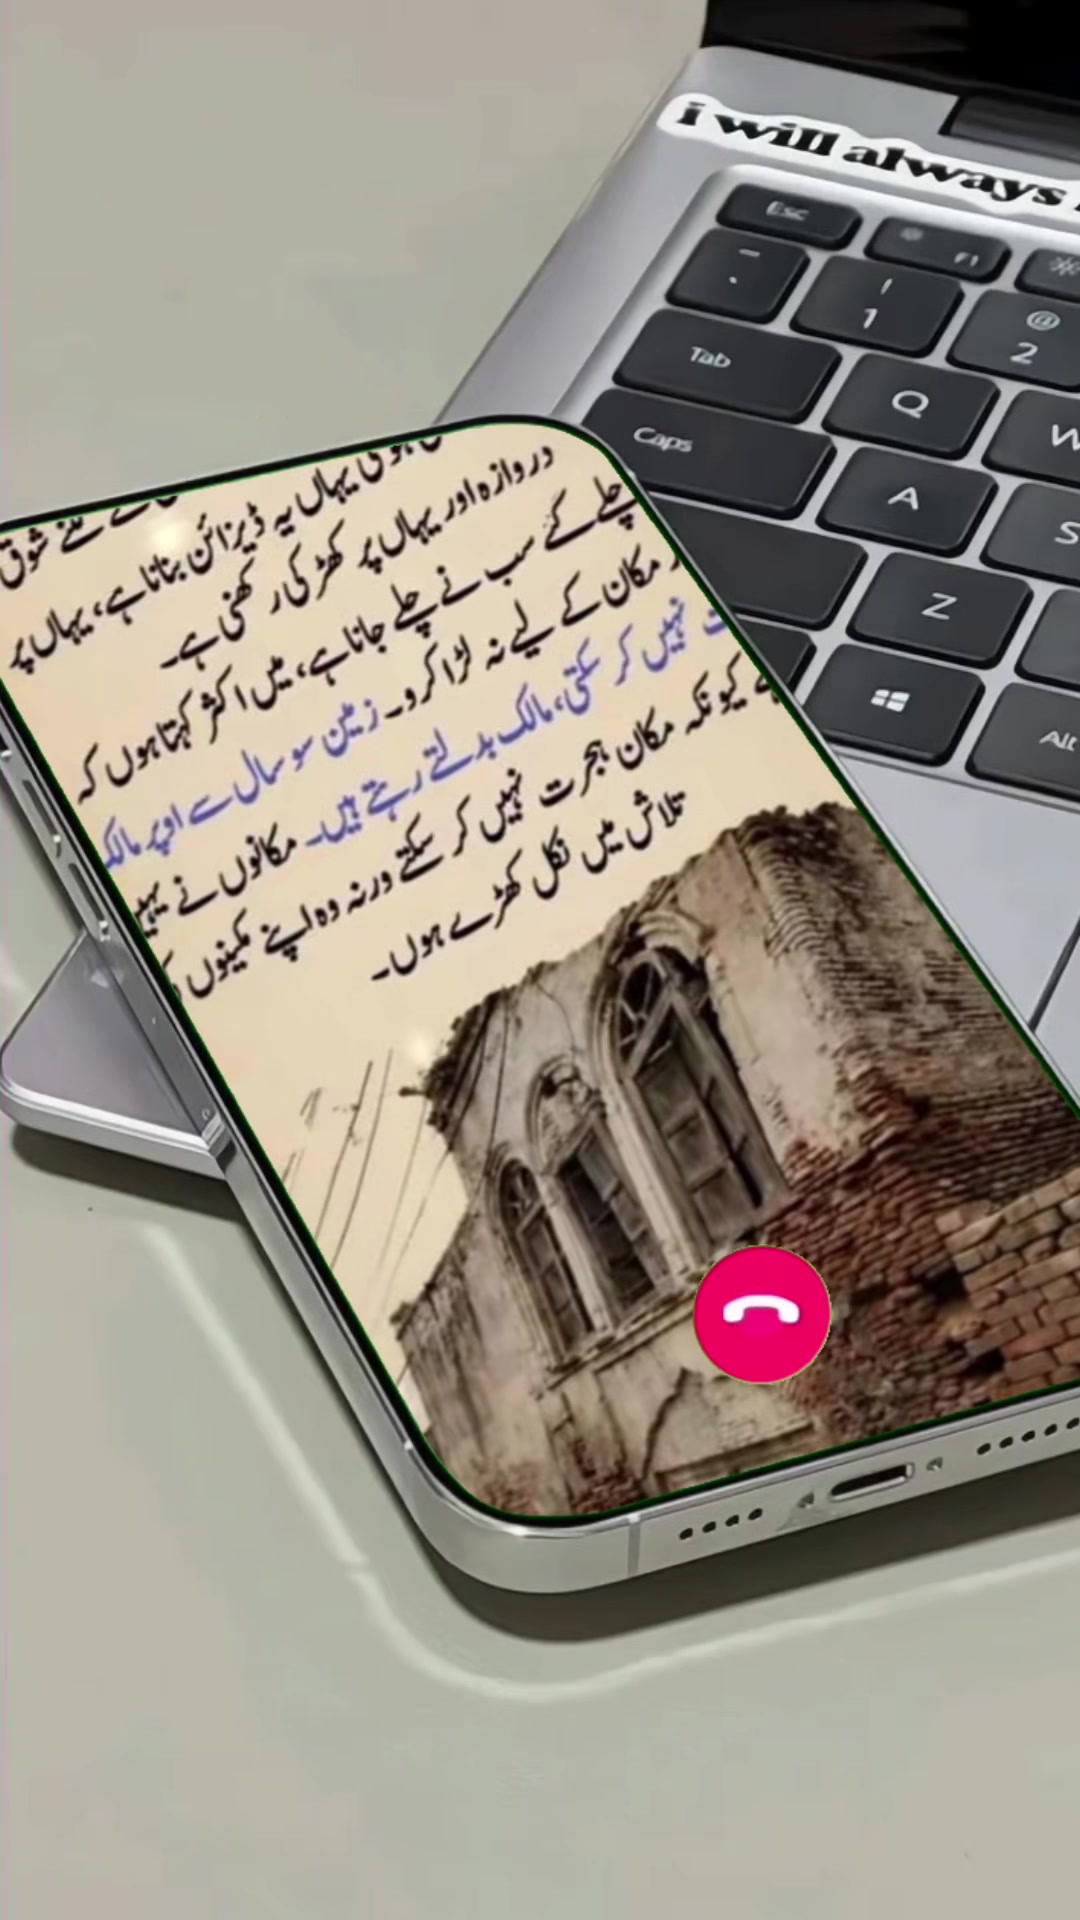 i will always
Esc
F1
1
@
2
Tab
Q
W
Caps
A
S
Z
Alt
شوق
یہاں یہ ڈیزائن بنانا ہے، یہاں پر
دروازہ اور یہاں پر کھڑکی رکھنی ہے۔
چلے گئے سب نے چلے جانا ہے، میں اکثر کہتا ہوں کہ
مکان کے لیے نہ لڑا کرو۔ زمین سو سال سے اوپر
نہیں کر سکتی، مالک بدلتے رہتے ہیں۔ مکانوں نے یہیں
کیونکہ مکان ہجرت نہیں کر سکتے ورنہ وہ اپنے مکینوں
تلاش میں نکل کھڑے ہوں۔